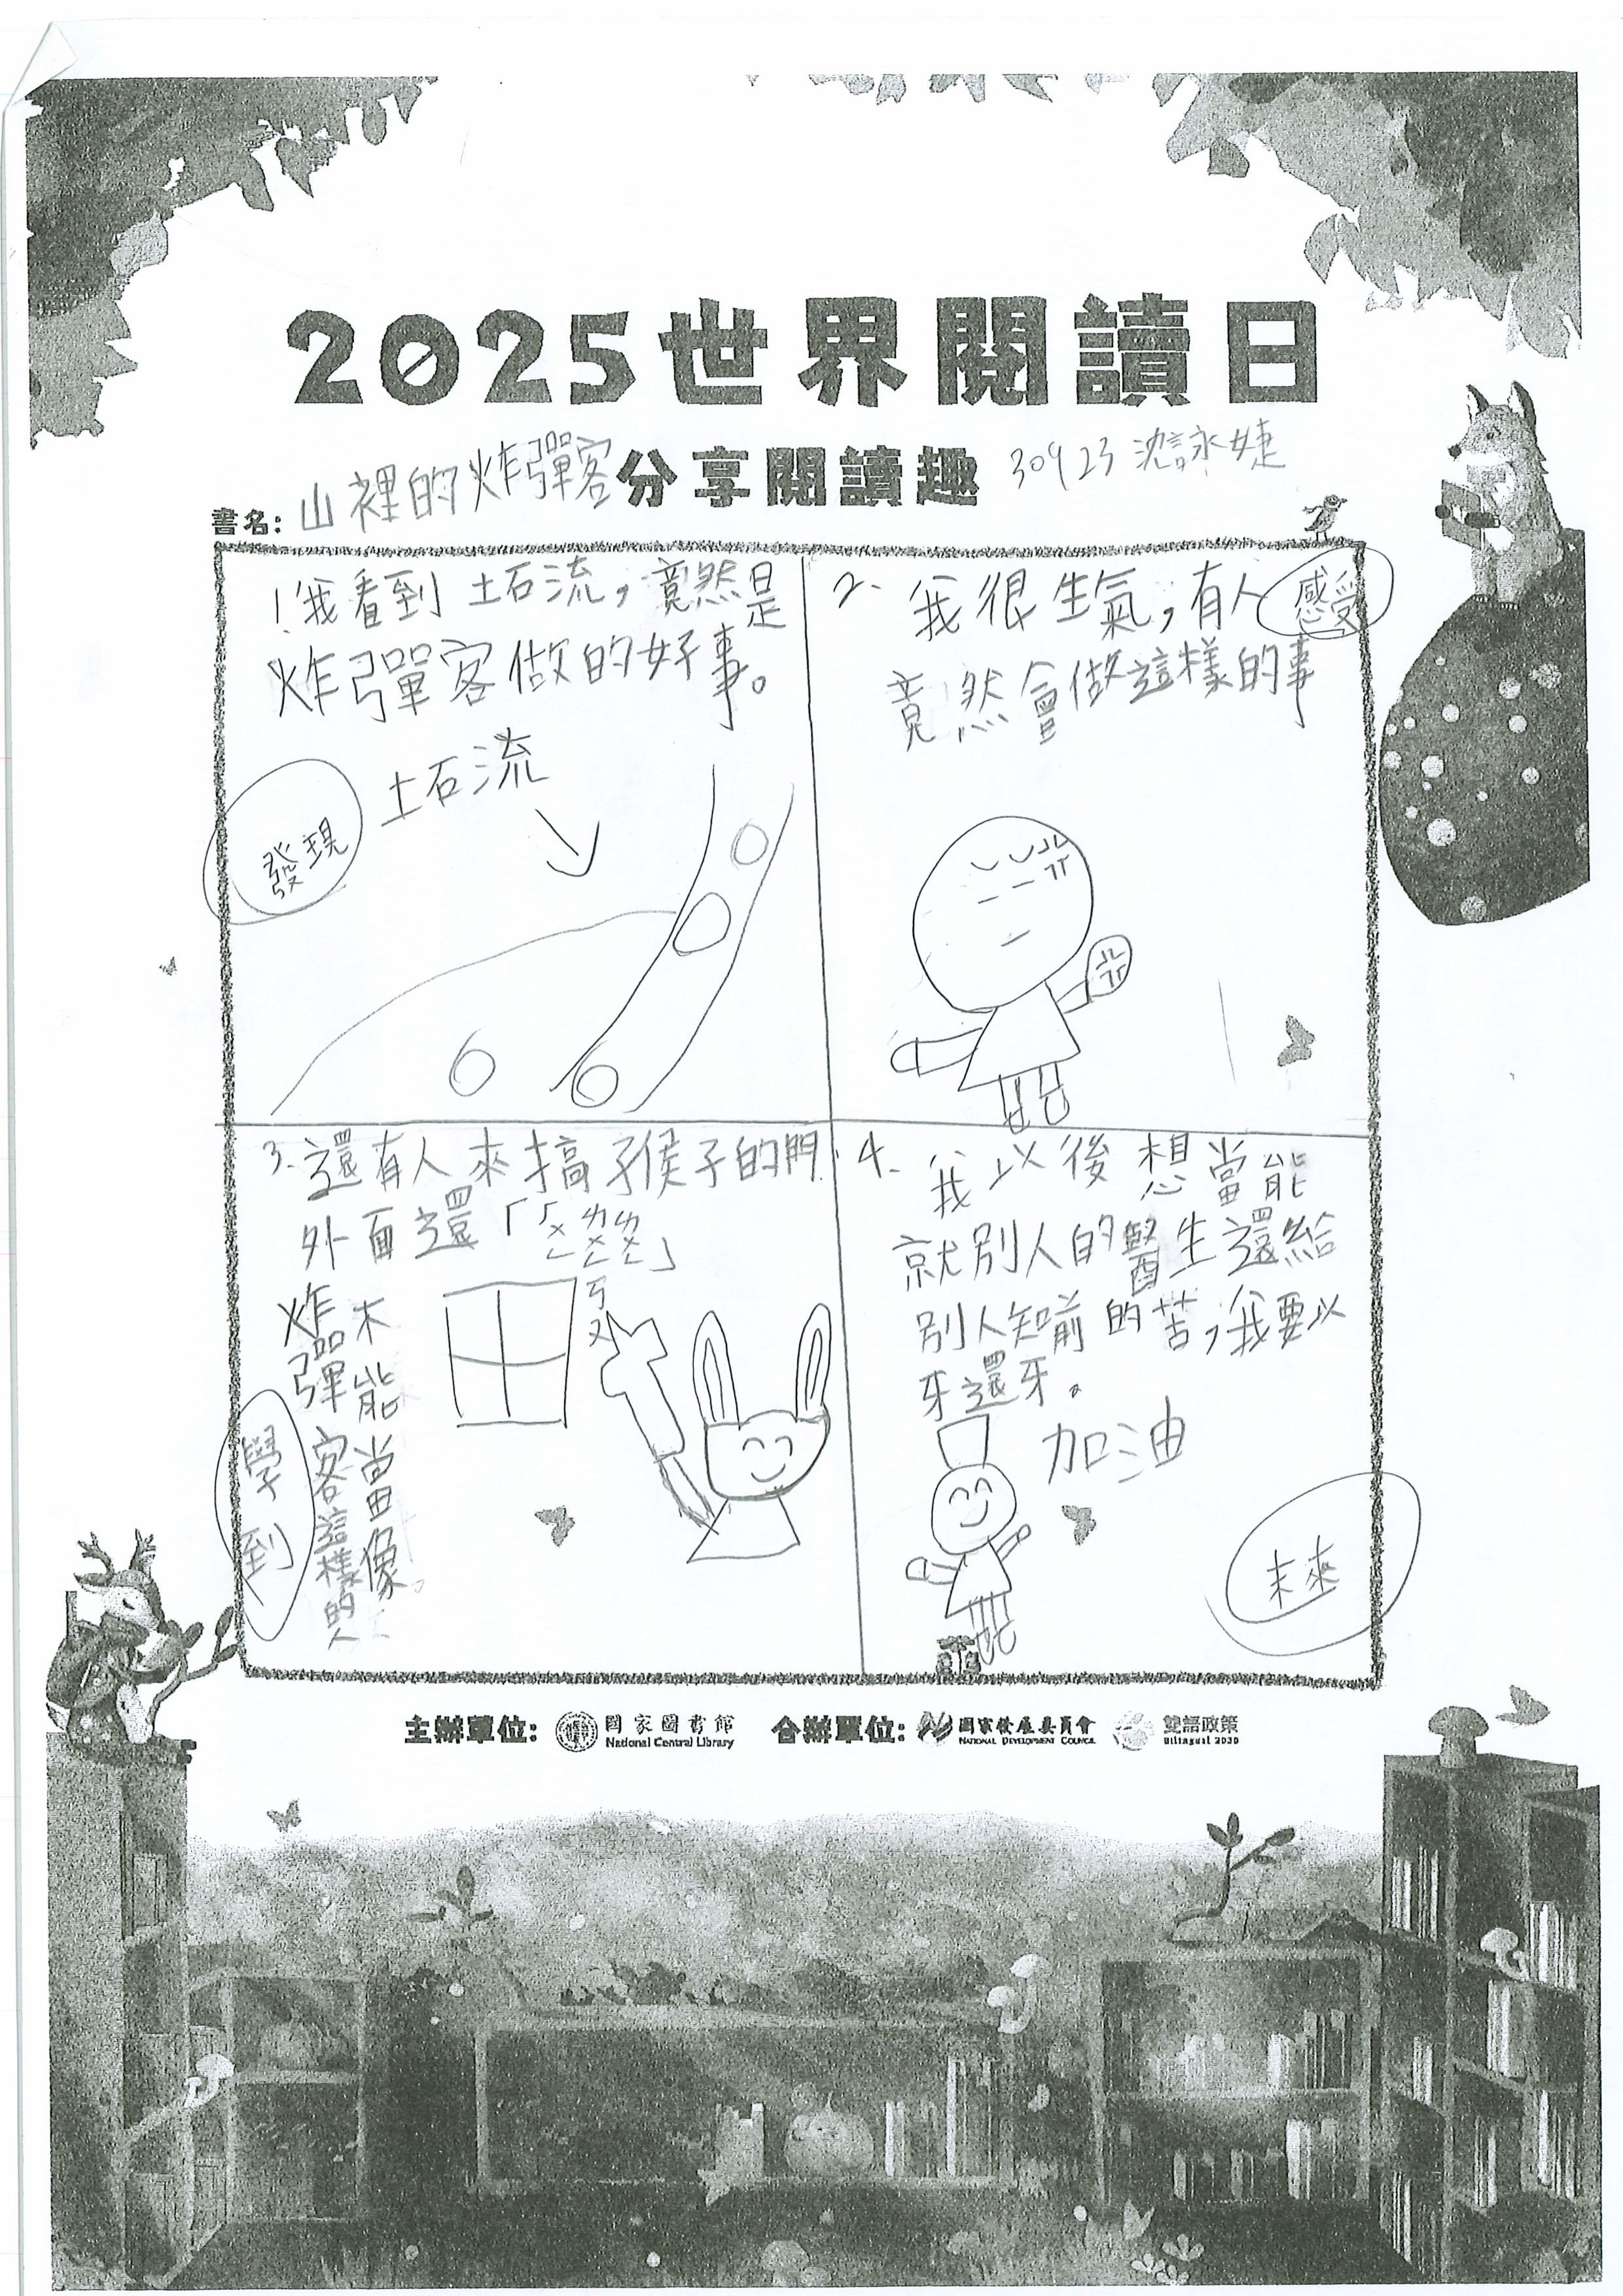 2025世界閱讀日
分享閱讀趣
30923 沈詠婕
書名: 山裡的炸彈客
1.我看到土石流,竟然是
炸彈客做的好事。
土石流
發現
2. 我很生氣,有人
竟然會做這樣的事
感受
3. 還有人來搞猴子的門
外面還「ㄍㄨㄥ ㄌㄨㄥ ㄌㄨㄥ」
不能當像
炸彈客這樣的人。
學到
4. 我以後想當能
就別人的醫生還給
別人知前的苦,我要以
牙還牙。
加油
未來
主辦單位: 國家圖書館 National Central Library
合辦單位: 國家發展委員會 NATIONAL DEVELOPMENT COUNCIL
雙語政策 Bilingual 2030